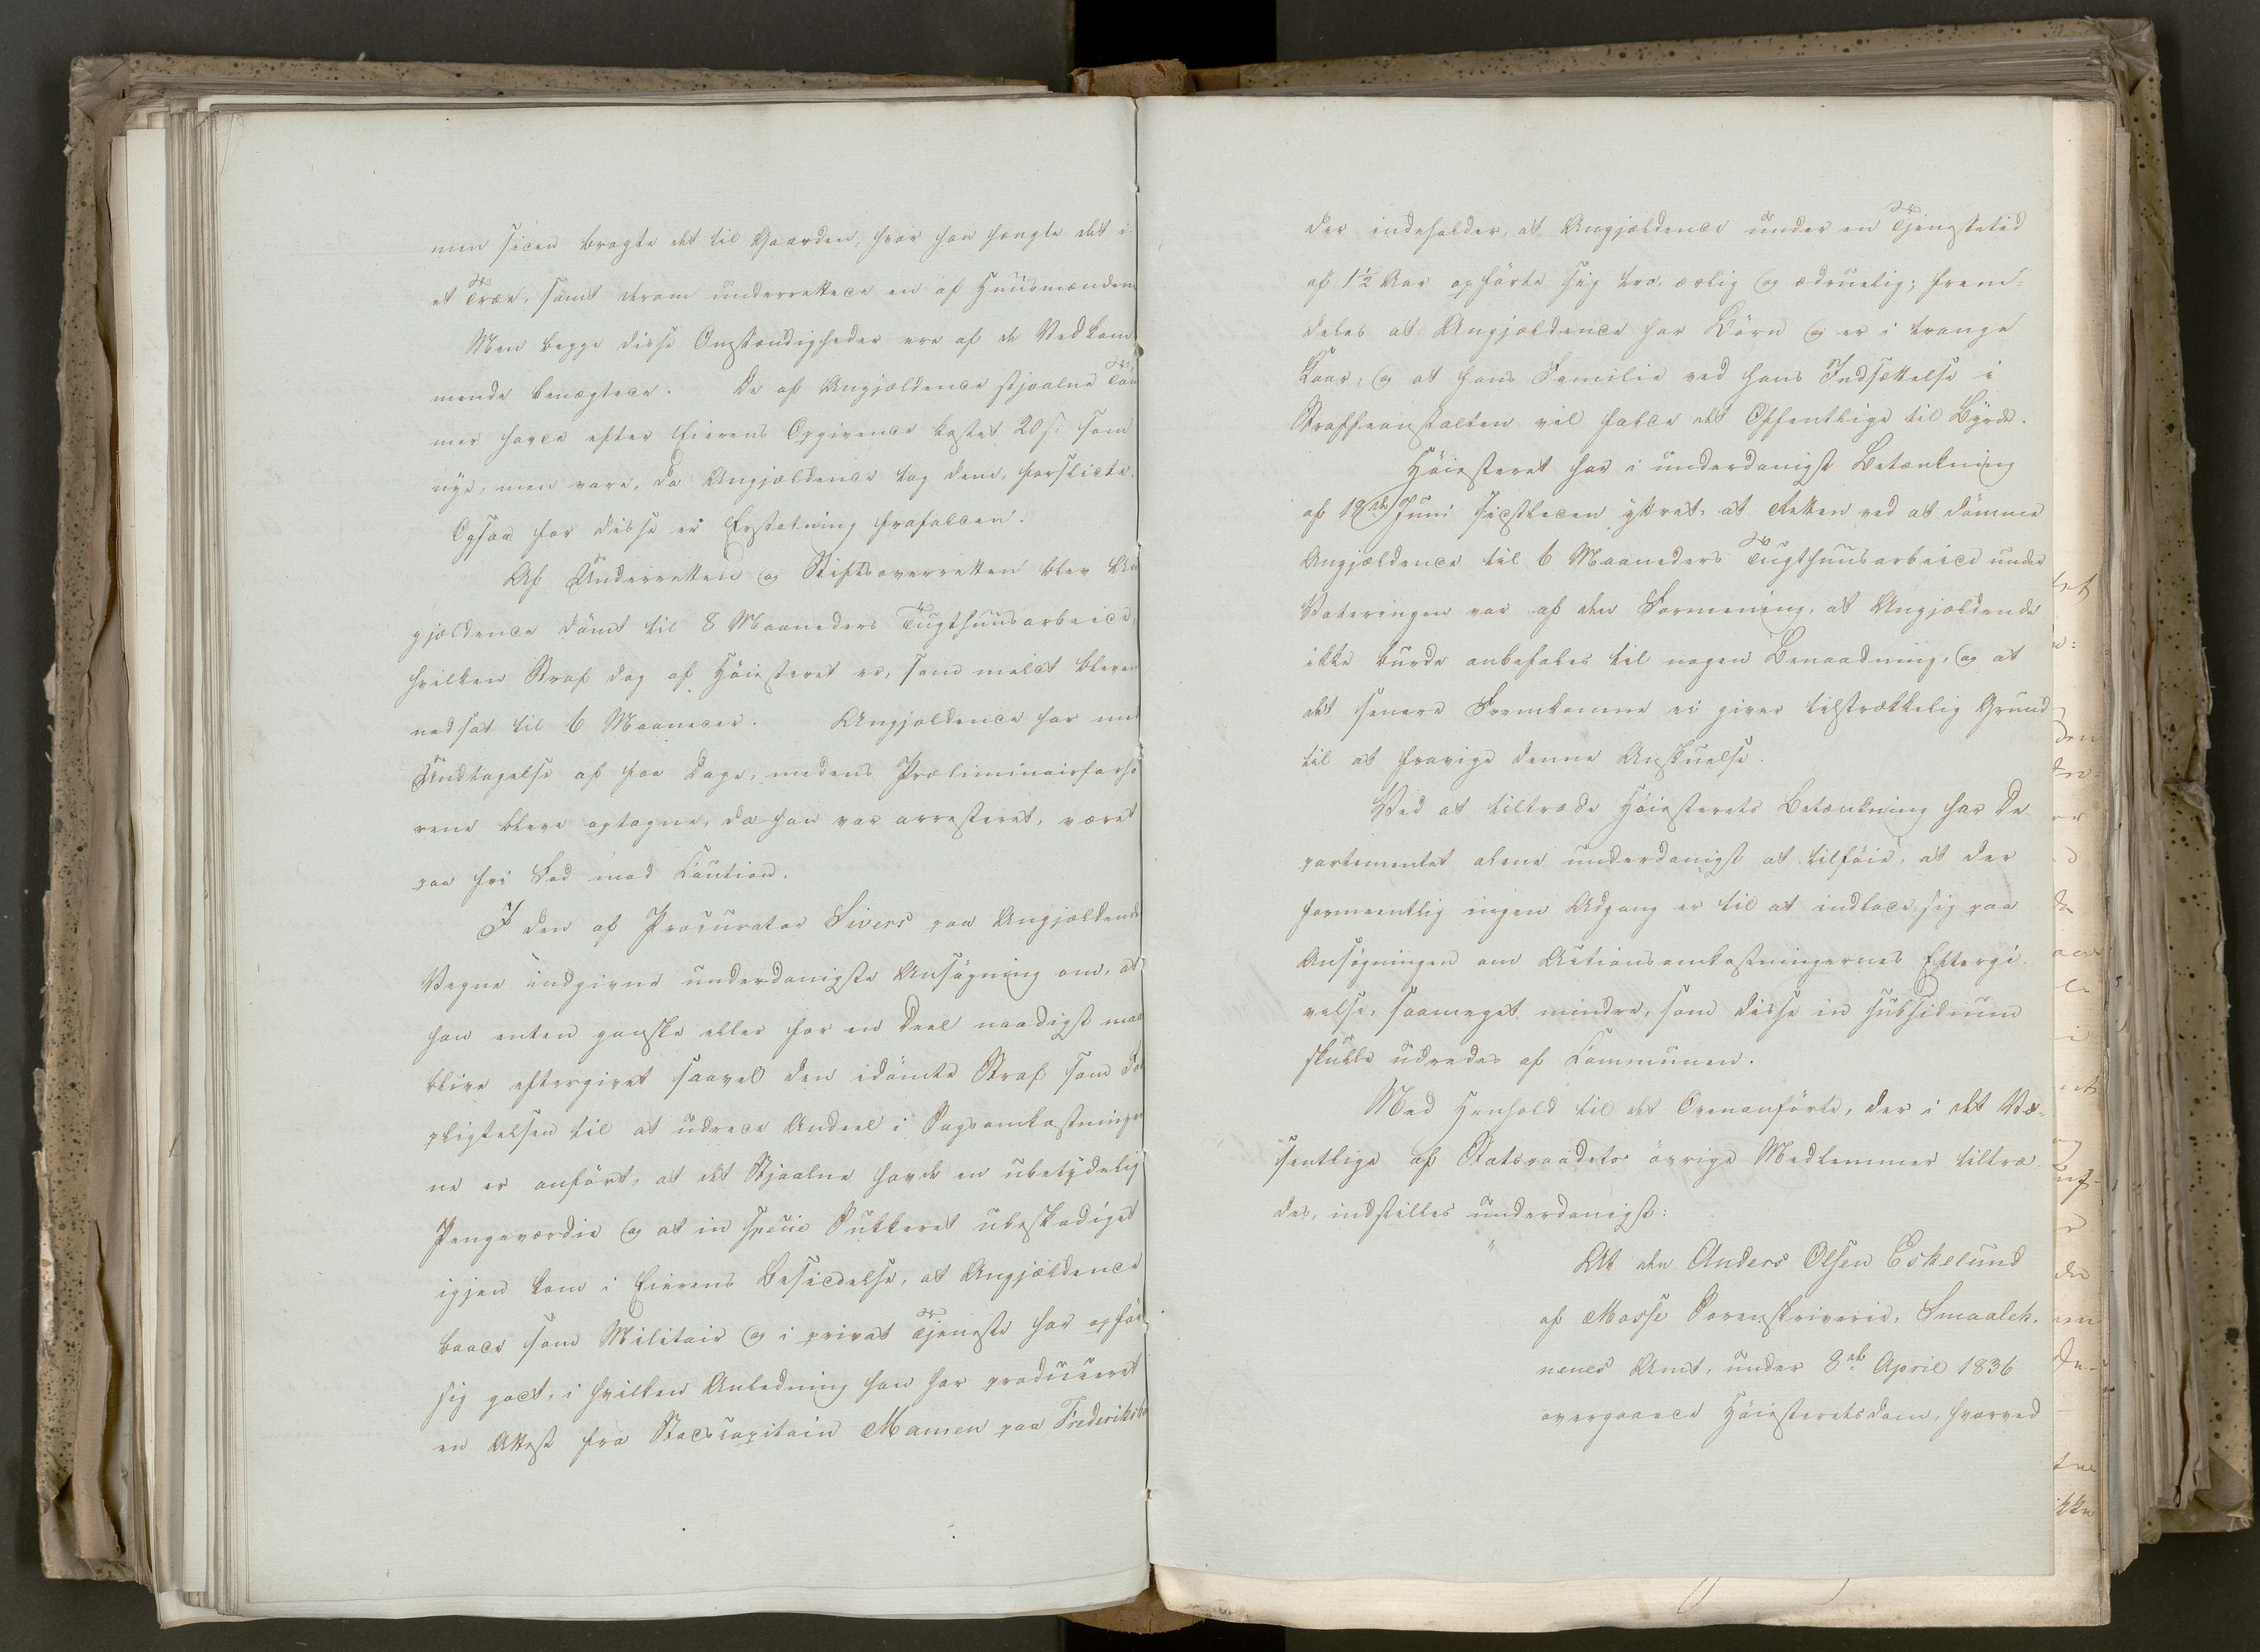 men siden bragte det til Gaarden, hvor han hængte det i
et Træe, samt derom underrettede en af Huusmændene
Men begge disse Omstændigheder ere af de Vedkom
mende benægtede. De af Angjældende stjaalne Töm
mer havde efter Eierens Opgivende kostet 20 s: som
nye, men vare, da Angjældende tog dem, forslidte.
Ogsaa for disse er Erstatning frafalden.
Af Underretten og Stiftsoverretten blev An
gjældende dömt til 8 Maaneders Tugthuusarbeide,
hvilken Straf dog af Höiesteret er, som meldt bleven
nedsat til 6 Maaneder. Angjældende har med
Undtagelse af faa Dage, medens Præliminairforhö
rene bleve optagne, da han var arresteret, været
paa fri Fod mod Caution.
I den af Procurator Sivers paa Angjældende
Vegne indgivne underdanigste Ansögning om, at
han enten ganske eller for en Deel naadigst maa
blive eftergivet saavel den idömte Straf som For
pligtelsen til at udrede Andeel i Sagsomkostninger
ne er anfört, at det Stjaalne havde en ubetydelig
Pengeværdie og at in specie Sukkeret ubeskadiget
igjen kom i Eierens Besiddelse, at Angjældende
baade som Militair og i privat Tjeneste har opför
sig godt, i hvilken Anledning han har produceret
en Attest fra Stadscapitain Mamen paa Frederiksha
der indeholder, at Angjældende under en Tjenestetid
af 1½ Aar opförte sig tro, ærlig og ædruelig; frem-
deles at Angjældende har Börn og er i trange
Kaar, og at hans Familie ved hans Indsættelse i
Straffeanstalten vil falde det Offentlige til Byrde.
Höiesteret har i underdanigst Betænkning
af 18de Juni sidstleden yttret, at Retten ved at dömme
Angjældende til 6 Maaneders Tugthuusarbeide under
Voteringen var af den Formening, at Angjældende
ikke burde anbefales til nogen Benaadning, og at
det senere Fremkomne ei giver tilstrækkelig Grund
til at fravige denne Anskuelse.
Ved at tiltræde Höiesterets Betænkning har De
partementet alene underdanigst at tilföie, at der
formeentlig ingen Adgang er til at indlade sig paa
Ansögningen om Actionsomkostningernes Eftergi-
velse, saameget mindre, som disse in subsidium
skulle udredes af Communen.
Med Henhold til det Ovenanförte, der i det Væ-
sentlige af Statsraadets övrige Medlemmer tiltræ
des, indstilles underdanigst:
At den Anders Olsen Eskelund
af Mosse Sorenskriverie, Smaaleh-
nenes Amt, under 8de April 1836
overgaaede Höiesteretsdom, hvorved